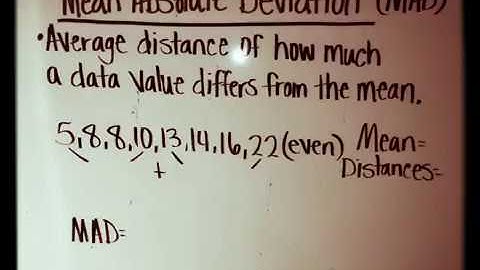 Mean Absolute Deviation (MAD)
•Average distance of how much
a data value differs from the mean.
5,8,8,10,13,14,16,22(even) Mean=
+ Distances=
MAD=